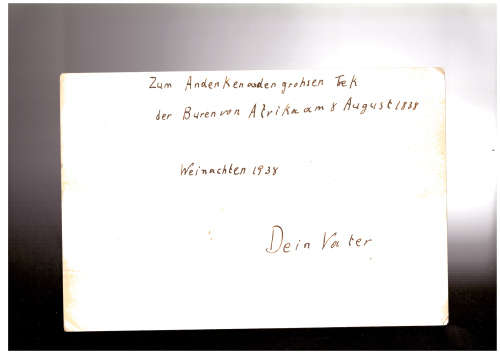 Zum Andenken an den grohsen Trek
der Buren von Afrika am 8 August 1838
Weinachten 1938
Dein Vater